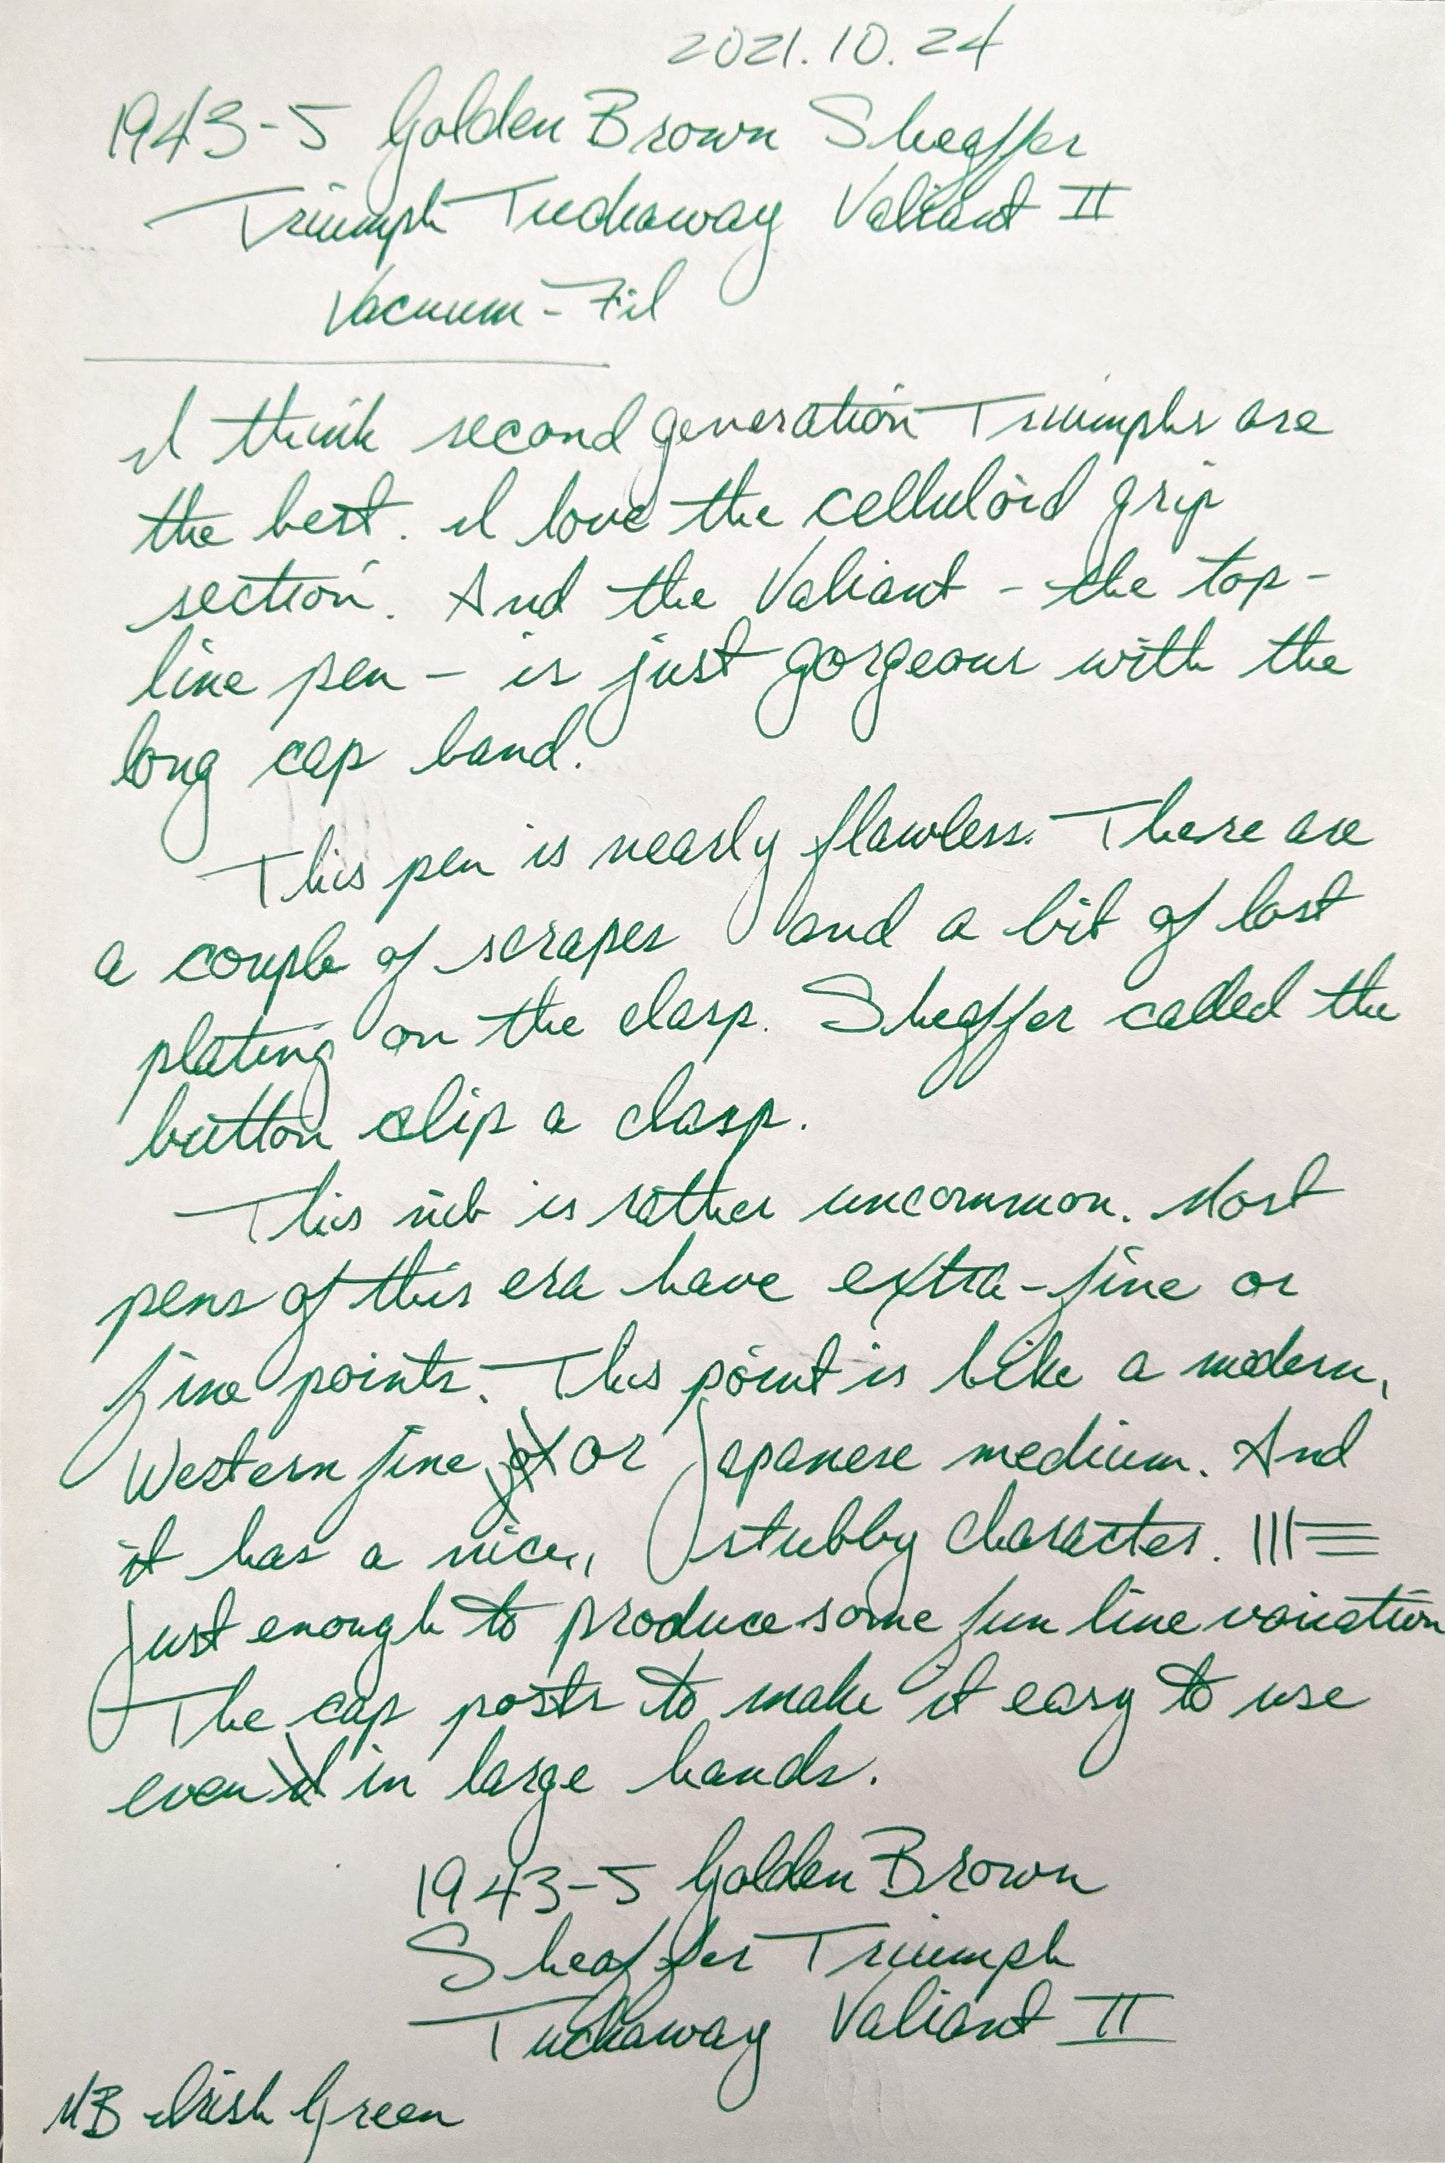 2021.10.24
1943-5 Golden Brown Sheaffer
Triumph Tuckaway Valiant II
Vacuum-Fil
I think second generation Triumphs are
the best. I love the celluloid grip
section. And the Valiant - the top-
line pen - is just gorgeous with the
long cap band.
This pen is nearly flawless. There are
a couple of scrapes and a bit of lost
plating on the clasp. Sheaffer called the
button clip a clasp.
This nib is rather uncommon. Most
pens of this era have extra-fine or
fine points. This point is like a modern,
Western fine or Japanese medium. And
it has a nice, stubby character.
Just enough to produce some fun line variation
The cap posts to make it easy to use
even in large hands.
1943-5 Golden Brown
Sheaffer Triumph
Tuckaway Valiant II
MB Irish Green